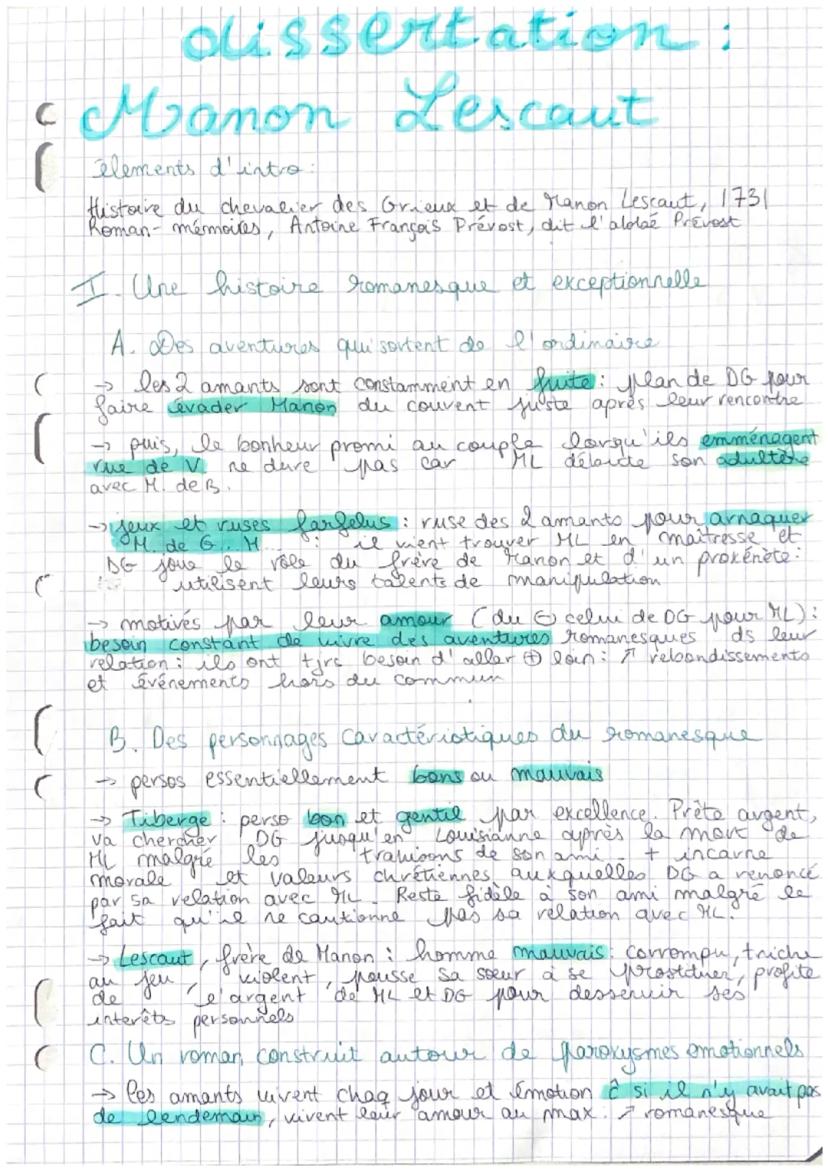 dissertation :
Manon Lescaut
élements d'intro :
Histoire du chevalier des Grieux et de Manon Lescaut, 1731
Roman-mémoires, Antoine François Prévost, dit l'abbé Prévost
I. Une histoire romanesque et exceptionnelle
A. Des aventures qui sortent de l'ordinaire
→ les 2 amants sont constamment en fuite : plan de DG pour
faire évader Manon du couvent juste après leur rencontre
→ puis, le bonheur promi au couple lorsqu'ils emménagent
rue de V. ne dure pas car ML débute son adultère
avec M. de B.
→ jeux et ruses farfelus : ruse des 2 amants pour arnaquer
M. de G. M. : il vient trouver ML en maîtresse et
DG joue le rôle du frère de Manon et d'un proxénète :
utilisent leurs talents de manipulation
→ motivés par leur amour (du ⊖ celui de DG pour ML) :
besoin constant de vivre des aventures romanesques ds leur
relation : ils ont tjrs besoin d'aller ⊕ loin : ↗ rebondissements
et événements hors du commun
B. Des personnages caractéristiques du romanesque
→ persos essentiellement bons ou mauvais
→ Tiberge : perso bon et gentil par excellence. Prête argent,
va chercher DG jusqu'en Louisianne après la mort de
ML malgré les trahisons de son ami. + incarne
morale et valeurs chrétiennes auxquelles DG a renoncé
par sa relation avec ML. Reste fidèle à son ami malgré le
fait qu'il ne cautionne pas sa relation avec ML.
→ Lescaut, frère de Manon : homme mauvais : corrompu, triche
au jeu, violent, pousse sa soeur à se prostituer, profite
de l'argent de ML et DG pour desservir ses
interêts personnels
C. Un roman construit autour de paroxysmes emotionnels
→ les amants vivent chaq jour et émotion ĉ si il n'y avait pas
de lendemain, vivent leur amour au max. ↗ romanesque